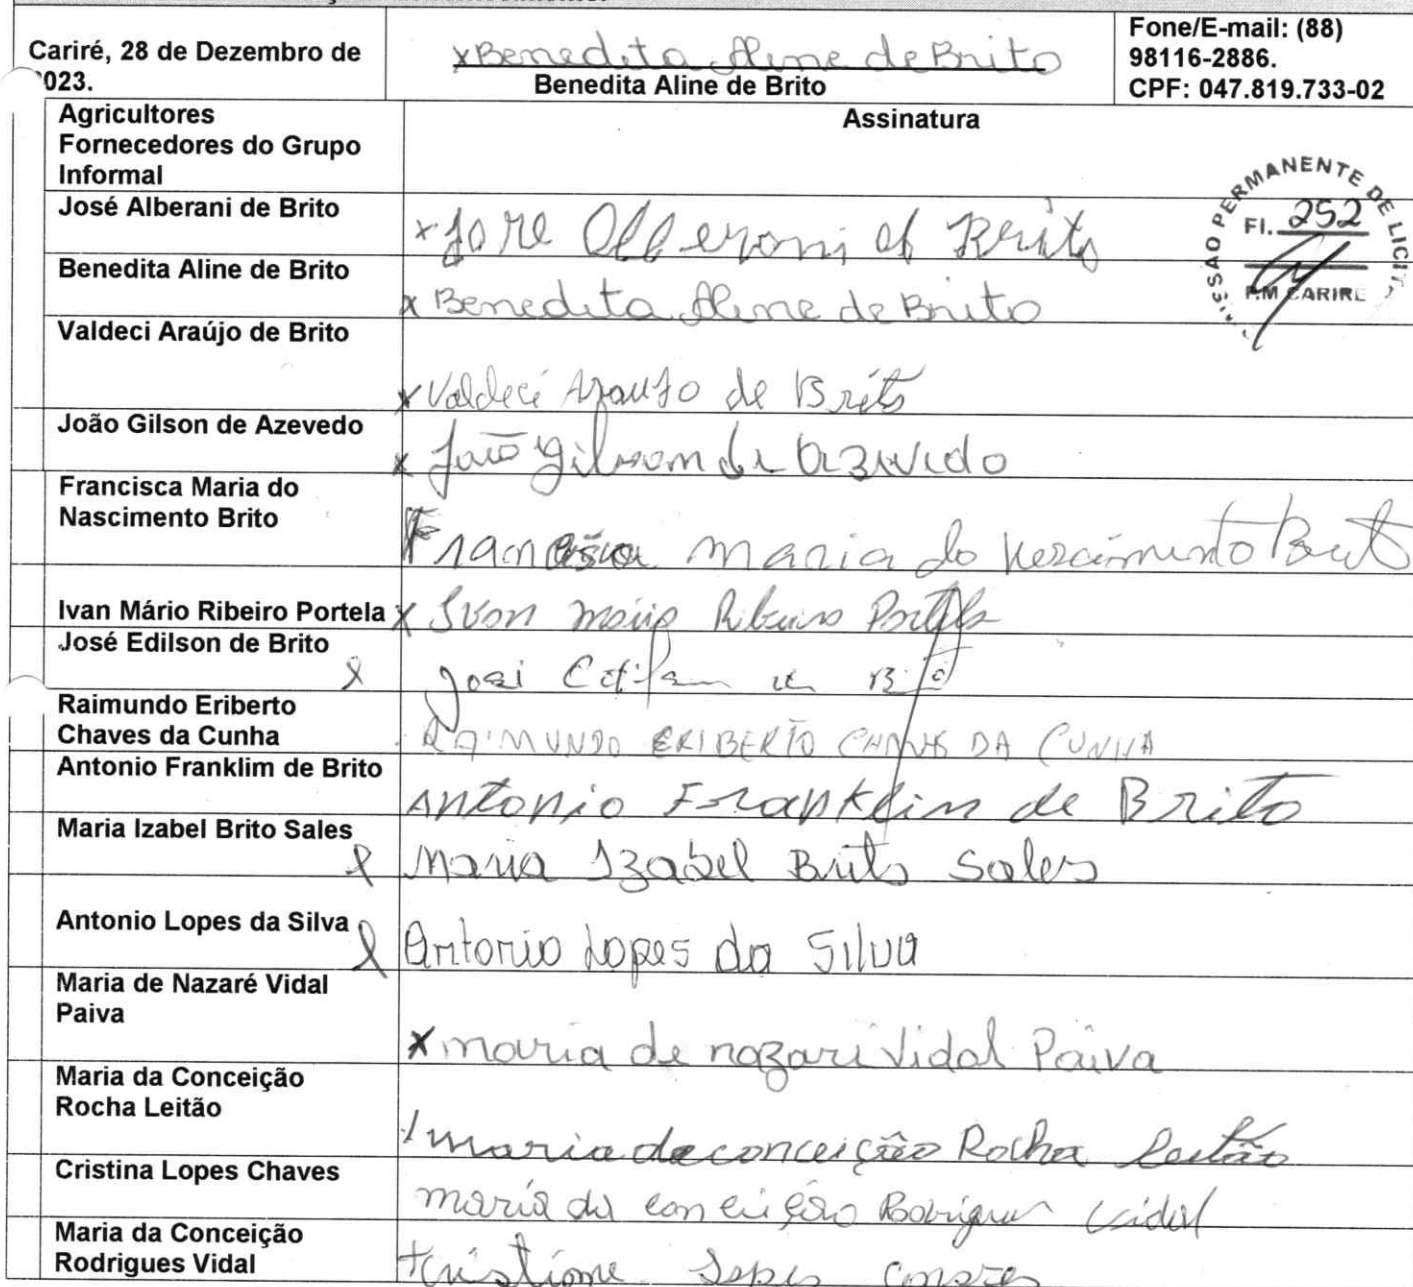 Cariré, 28 de Dezembro de
2023.
xBenedita Aline de Brito
Benedita Aline de Brito
Fone/E-mail: (88)
98116-2886.
CPF: 047.819.733-02
Agricultores
Fornecedores do Grupo
Informal
Assinatura
PERMANENTE DE
Fl. 252
P.M CARIRE
José Alberani de Brito
x José Alberoni de Brito
Benedita Aline de Brito
x Benedita Aline de Brito
Valdeci Araújo de Brito
x Valdeci Araujo de Brito
João Gilson de Azevedo
x João Gilson de Azevedo
Francisca Maria do
Nascimento Brito
Francisca maria do Nascimento Brito
Ivan Mário Ribeiro Portela
x Ivan Mário Ribeiro Portela
José Edilson de Brito
José
Raimundo Eriberto
Chaves da Cunha
RAIMUNDO ERIBERTO CHAVES DA CUNHA
Antonio Franklim de Brito
Antonio Franklin de Brito
Maria Izabel Brito Sales
Maria Izabel Brito Sales
Antonio Lopes da Silva
Antonio Lopes da Silva
Maria de Nazaré Vidal
Paiva
x maria de nazaré Vidal Paiva
Maria da Conceição
Rocha Leitão
maria da conceição Rocha Leitão
Cristina Lopes Chaves
maria da conceição Rodrigues Vidal
Maria da Conceição
Rodrigues Vidal
Lopes